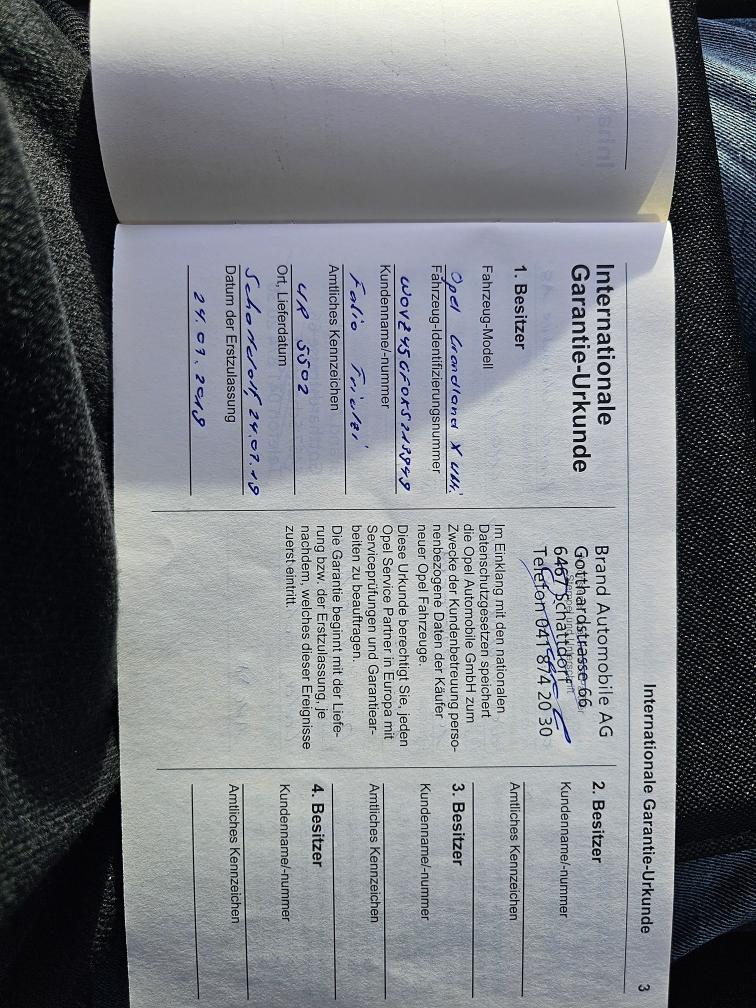 Internationale Garantie-Urkunde 3
Internationale
Garantie-Urkunde
1. Besitzer
Fahrzeug-Modell
Opel Grandland X
Fahrzeug-Identifizierungsnummer
Kundenname/-nummer
Amtliches Kennzeichen
UR 5502
Ort, Lieferdatum
Schattdorf, 24.07.19
Datum der Erstzulassung
24.07.2019
Brand Automobile AG
Gotthardstrasse 66
6467 Schattdorf
Telefon 041 874 20 30
Im Einklang mit den nationalen
Datenschutzgesetzen speichert
die Opel Automobile GmbH zum
Zwecke der Kundenbetreuung perso-
nenbezogene Daten der Käufer
neuer Opel Fahrzeuge.
Diese Urkunde berechtigt Sie, jeden
Opel Service Partner in Europa mit
Serviceprüfungen und Garantiear-
beiten zu beauftragen.
Die Garantie beginnt mit der Liefe-
rung bzw. der Erstzulassung, je
nachdem, welches dieser Ereignisse
zuerst eintritt.
2. Besitzer
Kundenname/-nummer
Amtliches Kennzeichen
3. Besitzer
Kundenname/-nummer
Amtliches Kennzeichen
4. Besitzer
Kundenname/-nummer
Amtliches Kennzeichen